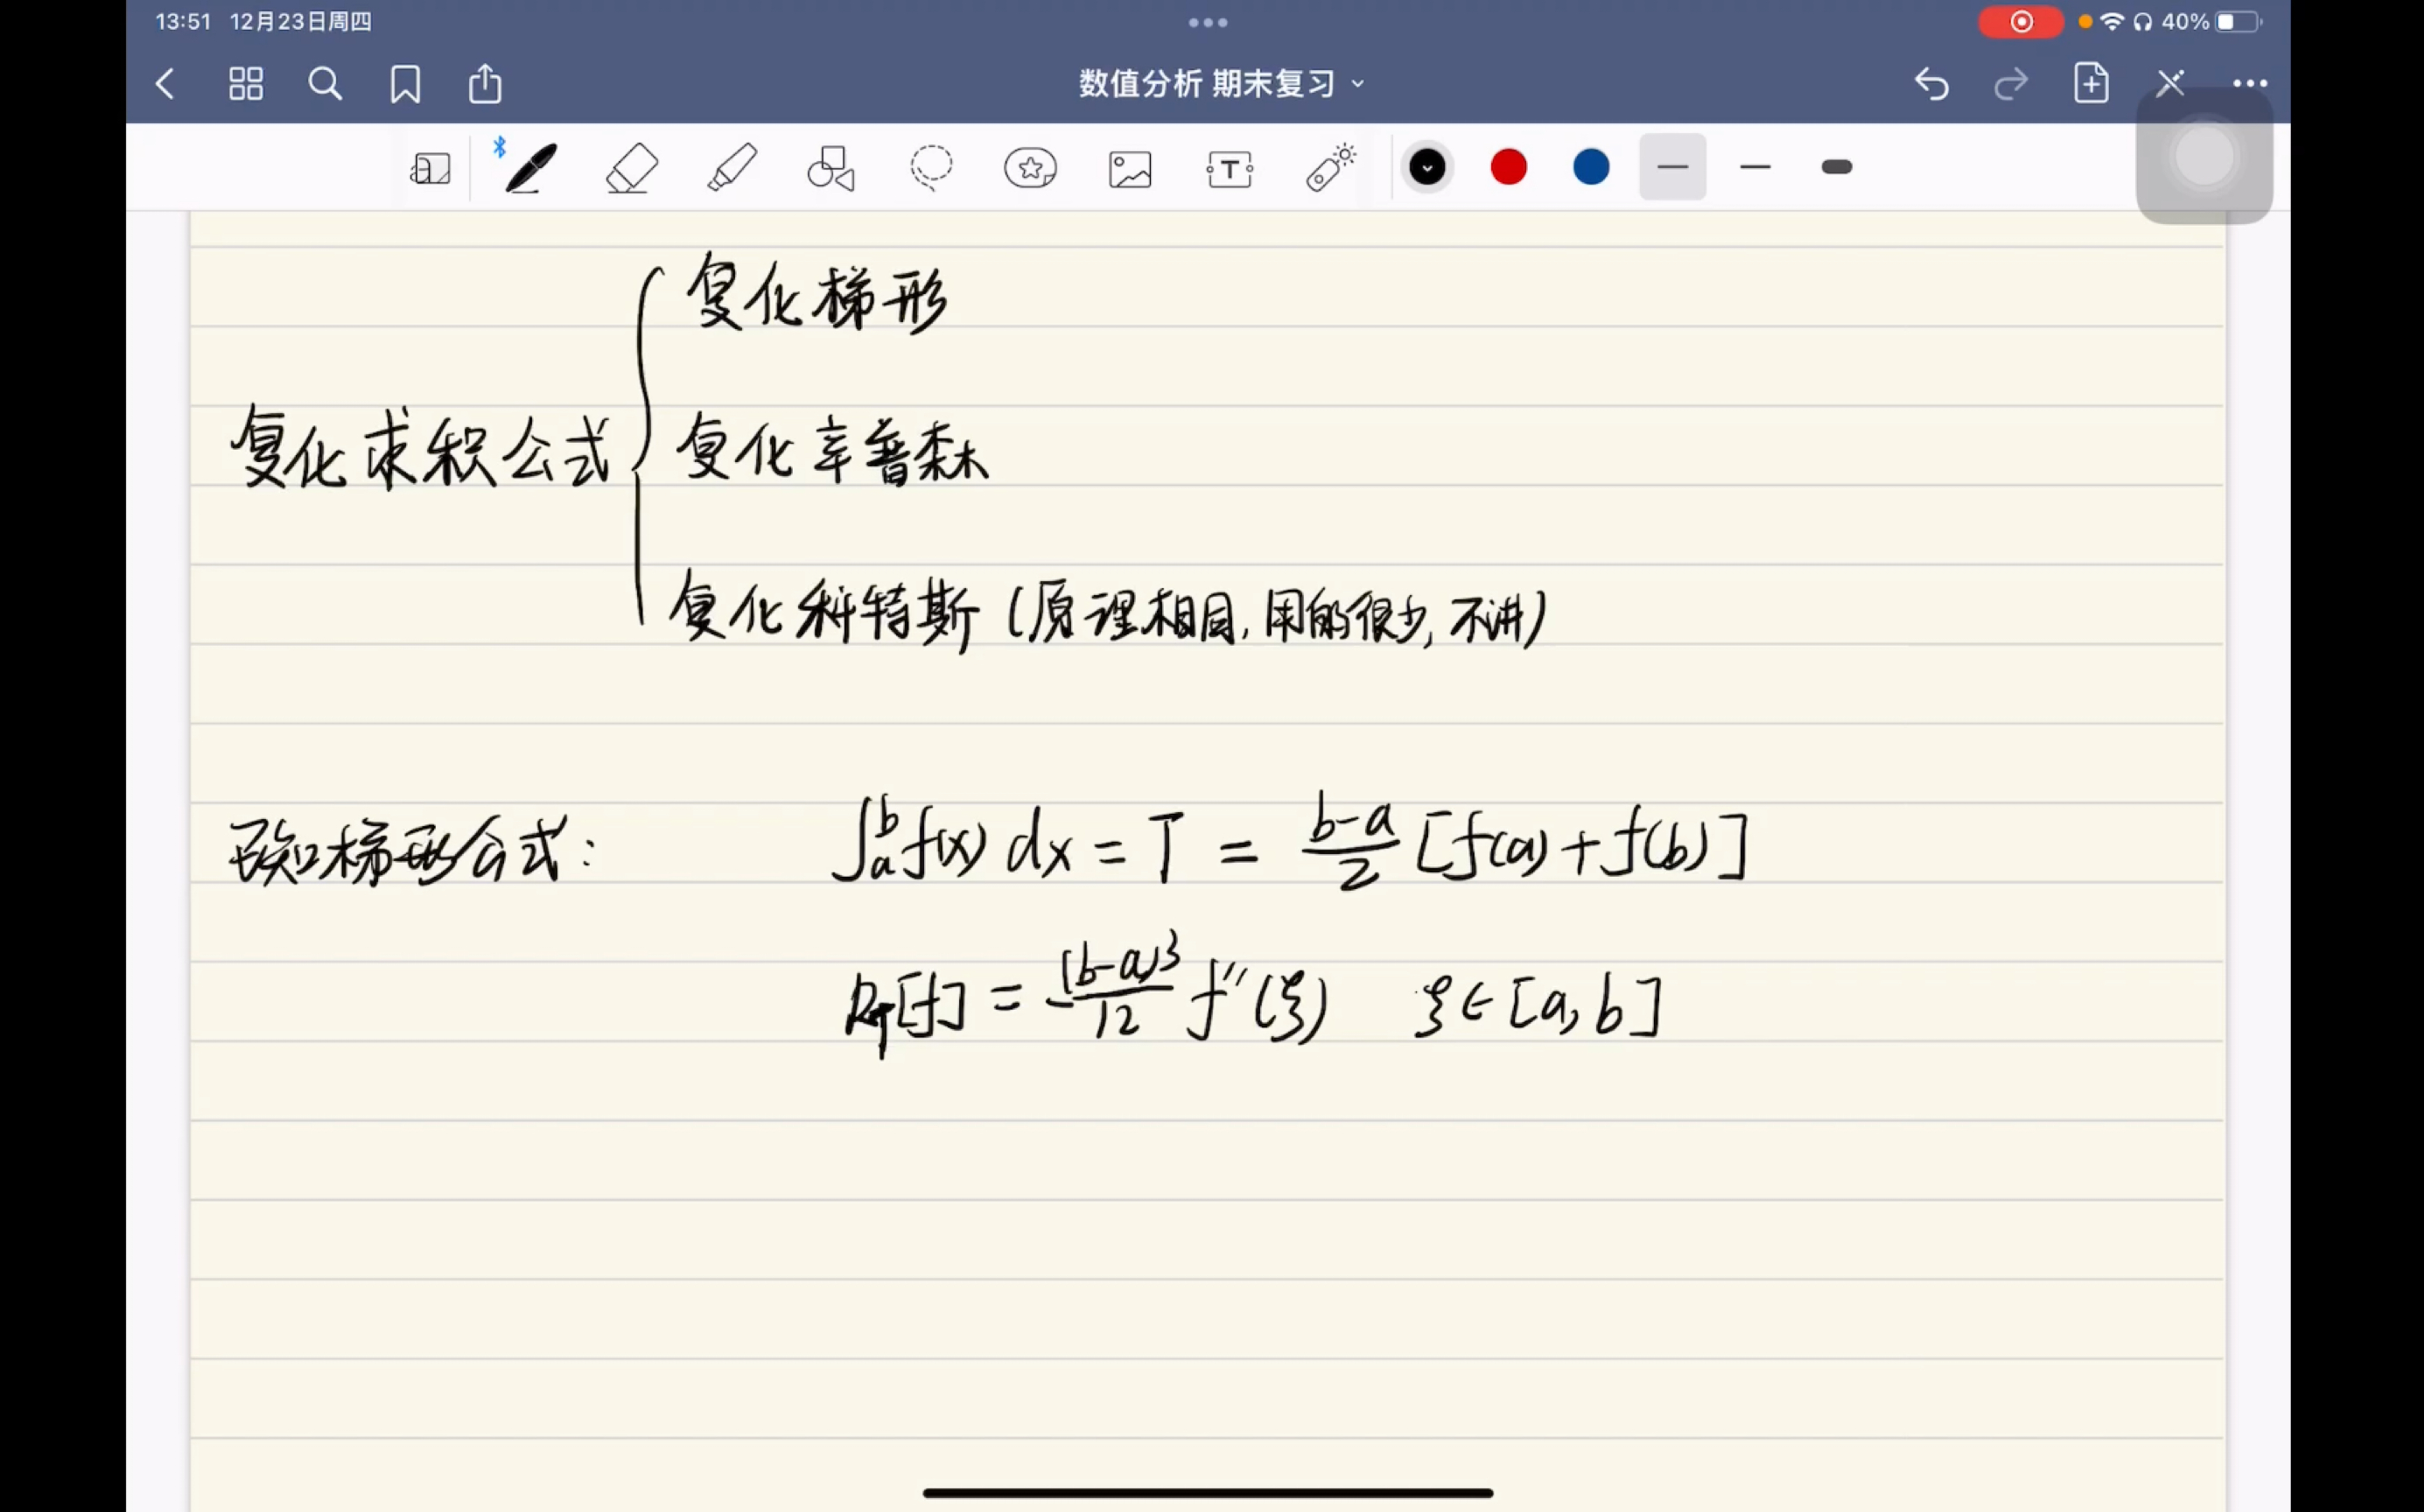 13:51 12月23日周四
40%
数值分析 期末复习
复化求积公式
复化梯形
复化辛普森
复化科特斯 (原理相同, 用的很少, 不讲)
已知梯形公式: ∫_a^b f(x) dx = T = (b-a)/2 [f(a)+f(b)]
R_T[f] = -(b-a)³/12 f''(ξ) ξ∈[a,b]